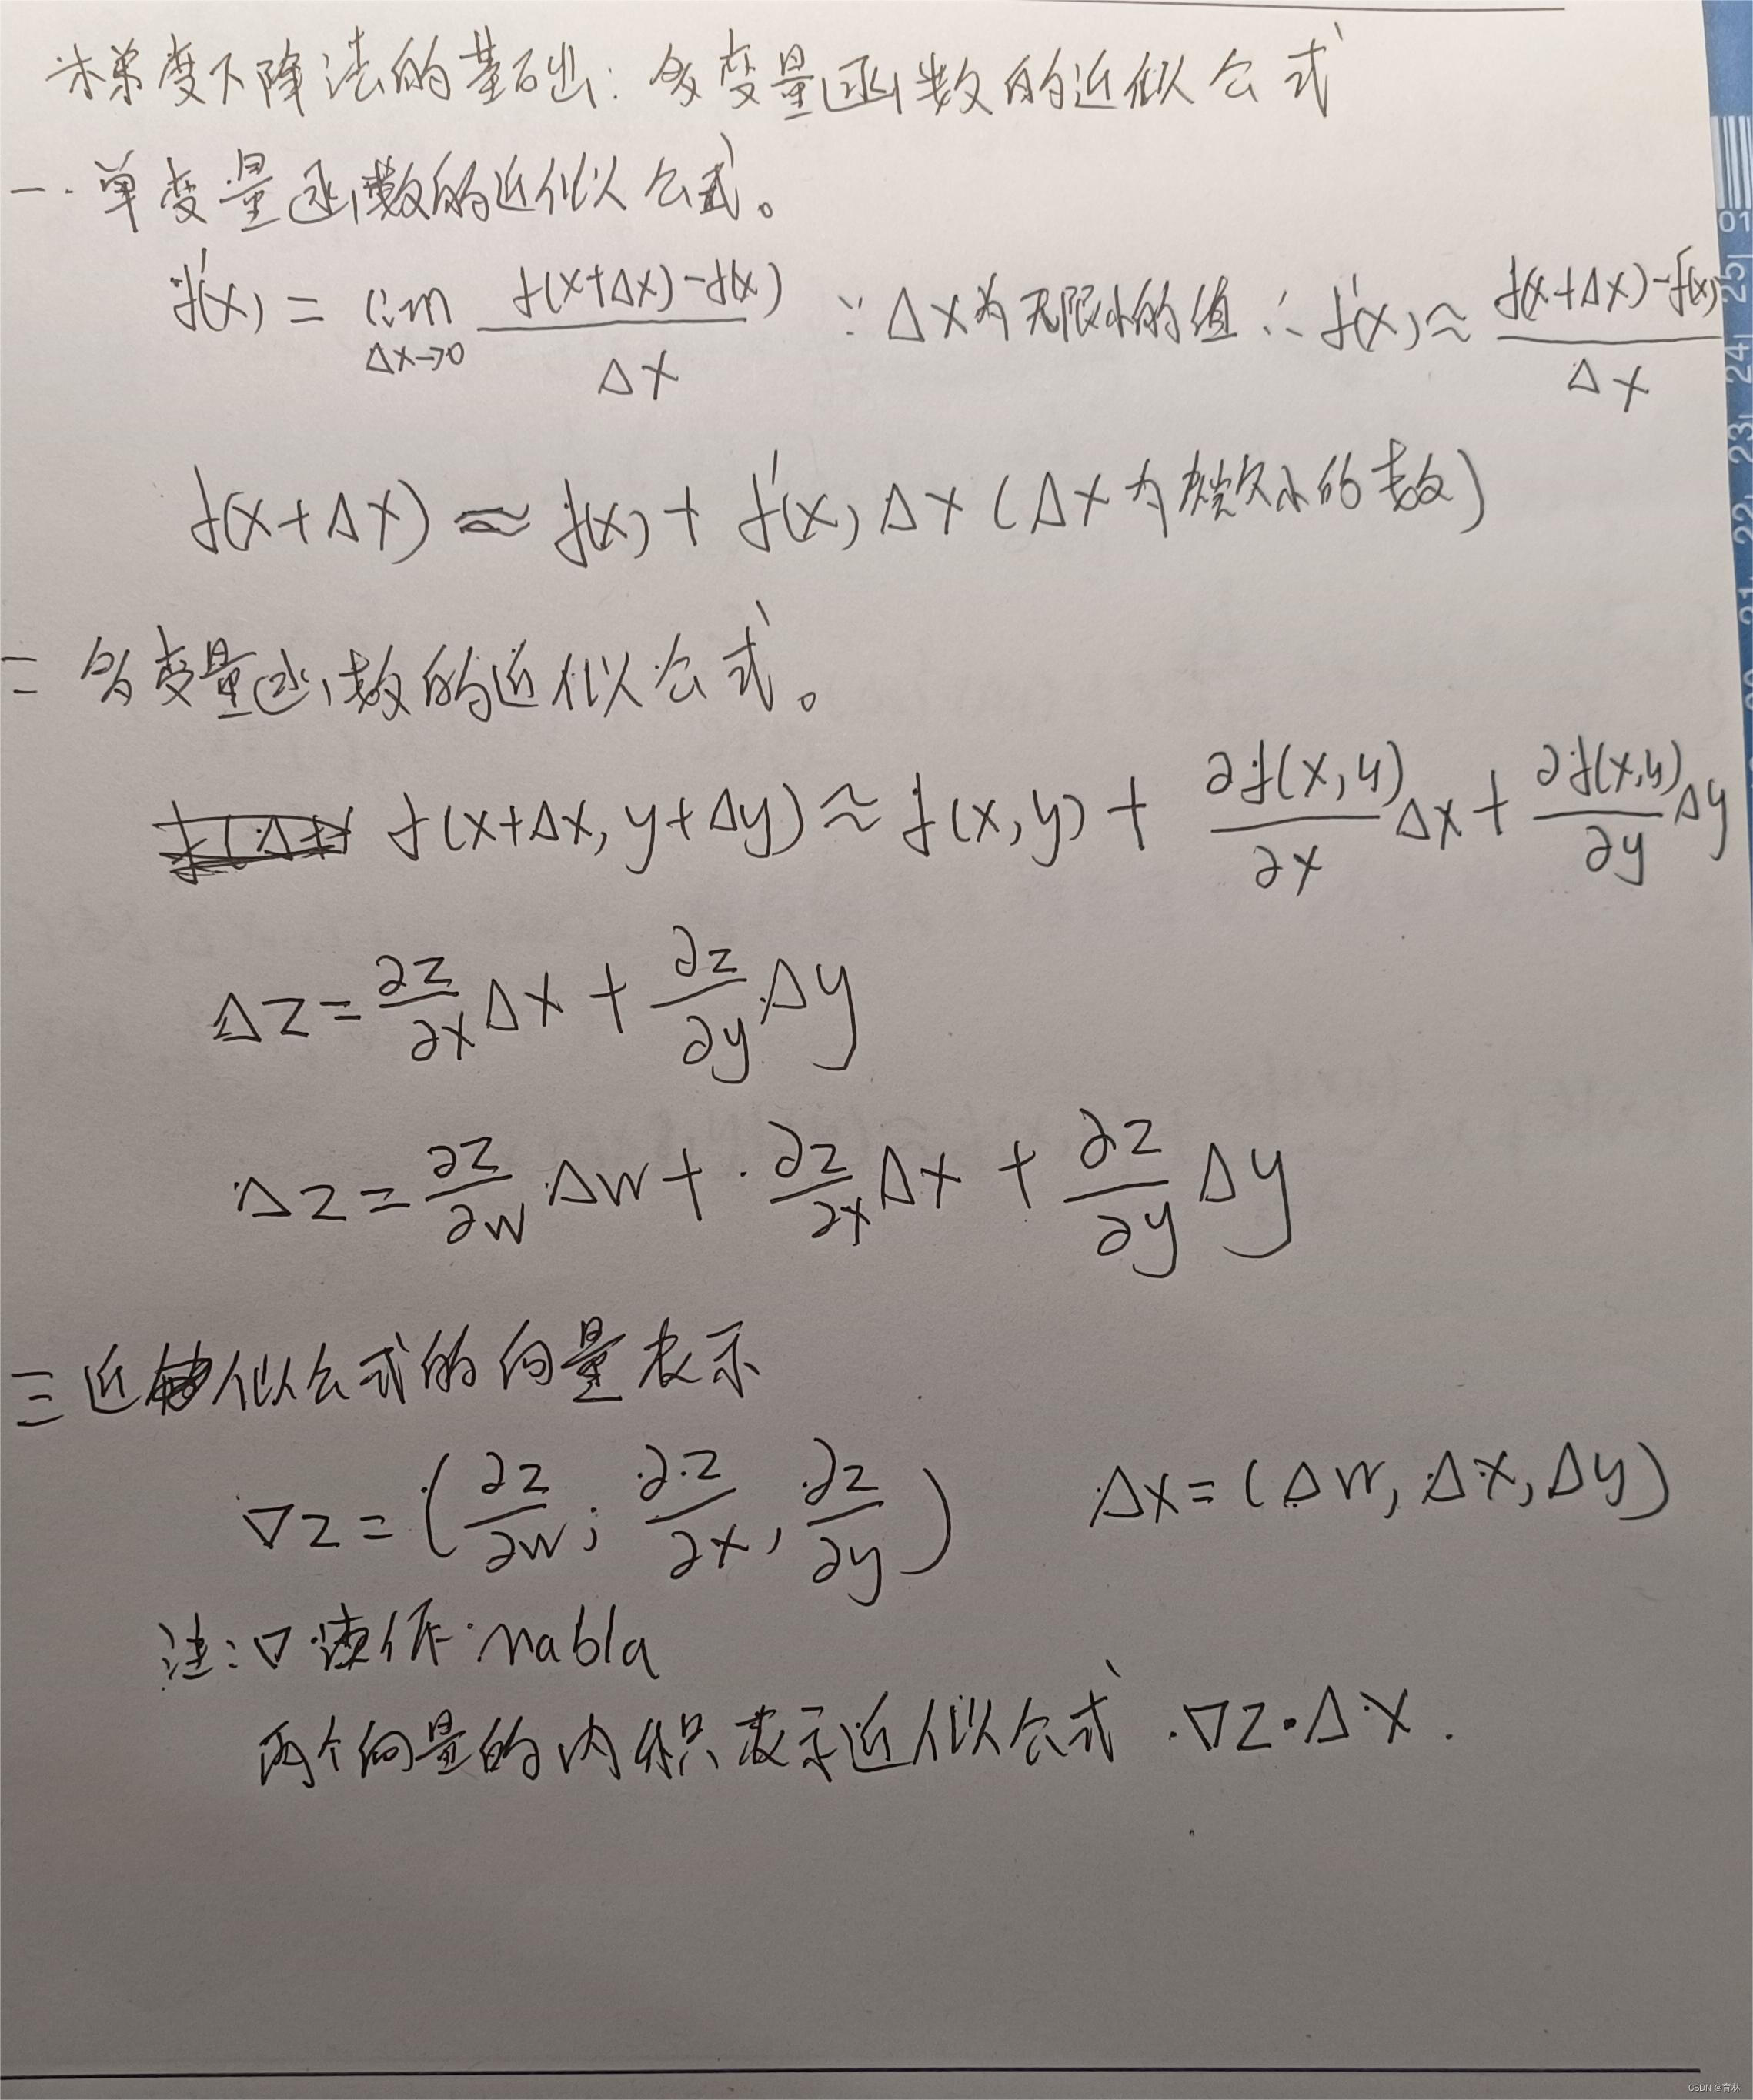 梯度下降法的基础:多变量函数的近似公式
一.单变量函数的近似公式。
f'(x) = lim Δx→0 (f(x+Δx)-f(x))/Δx ∵ Δx为无限小的值 ∴ f'(x) ≈ (f(x+Δx)-f(x))/Δx
f(x+Δx) ≈ f(x) + f'(x)Δx (Δx为小的数)
二 多变量函数的近似公式。
f(x+Δx, y+Δy) ≈ f(x,y) + ∂f(x,y)/∂x Δx + ∂f(x,y)/∂y Δy
Δz = ∂z/∂x Δx + ∂z/∂y Δy
Δz = ∂z/∂w Δw + ∂z/∂x Δx + ∂z/∂y Δy
三 近似公式的向量表示
∇z = (∂z/∂w; ∂z/∂x, ∂z/∂y) Δx = (Δw, Δx, Δy)
注:∇读作nabla
两个向量的内积表示近似公式 ∇z·Δx.
01
25
24
23
22
21
CSDN @育林